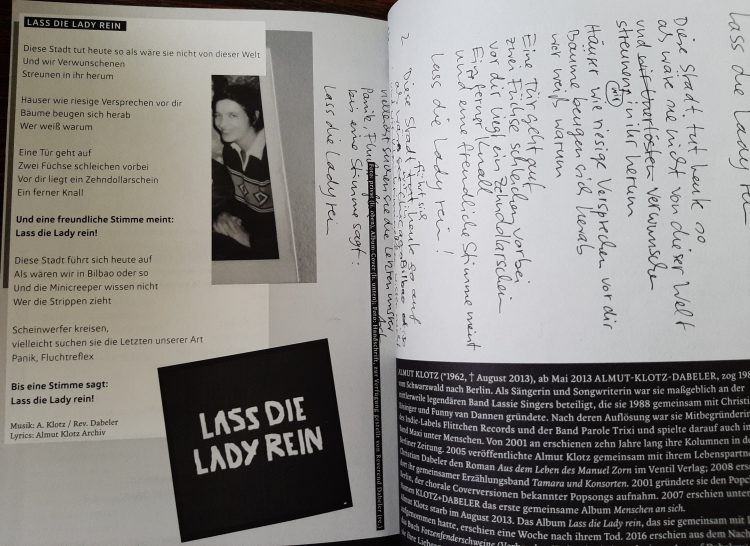 LASS DIE LADY REIN
Diese Stadt tut heute so als wäre sie nicht von dieser Welt
Und wir Verwunschenen
Streunen in ihr herum
Häuser wie riesige Versprechen vor dir
Bäume beugen sich herab
Wer weiß warum
Eine Tür geht auf
Zwei Füchse schleichen vorbei
Vor dir liegt ein Zehndollarschein
Ein ferner Knall
Und eine freundliche Stimme meint:
Lass die Lady rein!
Diese Stadt führt sich heute auf
Als wären wir in Bilbao oder so
Und die Minicreeper wissen nicht
Wer die Strippen zieht
Scheinwerfer kreisen,
vielleicht suchen sie die Letzten unserer Art
Panik, Fluchtreflex
Bis eine Stimme sagt:
Lass die Lady rein!
Musik: A. Klotz / Rev. Dabeler
Lyrics: Almut Klotz Archiv
LASS DIE
LADY REIN
Foto: privat (li. oben), Album Cover (li. unten); Foto: Handschrift, zur Verfügung gestellt von Reverend Dabeler (re.)
lass die Lady rein
Diese Stadt tut heute so
als wäre sie nicht von dieser Welt
und wir Verwunschenen
streunen in ihr herum
Häuser wie riesige Versprechen vor dir
Bäume beugen sich herab
wer weiß warum
Eine Tür geht auf
zwei Füchse schleichen vorbei
vor dir liegt ein Zehndollarschein
Ein ferner Knall
und eine freundliche Stimme meint
lass die Lady rein!
2 Diese Stadt
führt sich heute so auf
vielleicht suchen sie die Letzten unsrer Art
Panik,
bis eine Stimme sagt:
Lass die Lady rein
ALMUT KLOTZ (*1962, † August 2013), ab Mai 2013 ALMUT-KLOTZ-DABELER, zog 198
vom Schwarzwald nach Berlin. Als Sängerin und Songwriterin war sie maßgeblich an der
mittlerweile legendären Band Lassie Singers beteiligt, die sie 1988 gemeinsam mit Christi
und Funny van Dannen gründete. Nach deren Auflösung war sie Mitbegründerin
des Indie-Labels Flittchen Records und der Band Parole Trixi und spielte darauf auch in
Band Maxi unter Menschen. Von 2001 an erschienen zehn Jahre lang ihre Kolumnen in de
Berliner Zeitung. 2005 veröffentlichte Almut Klotz gemeinsam mit ihrem Lebenspartner
Christian Dabeler den Roman Aus dem Leben des Manuel Zorn im Ventil Verlag; 2008 ersc
ihr gemeinsamer Erzählungsband Tamara und Konsorten. 2001 gründete sie den Popch
Berlin, der chorale Coverversionen bekannter Popsongs aufnahm. 2007 erschien unter
Namen KLOTZ+DABELER das erste gemeinsame Album Menschen an sich.
Almut Klotz starb im August 2013. Das Album Lass die Lady rein, das sie gemeinsam mit
aufgenommen hatte, erschien eine Woche nach ihrem Tod. 2016 erschien aus dem Nach
das Buch Fotzenfenderschweine